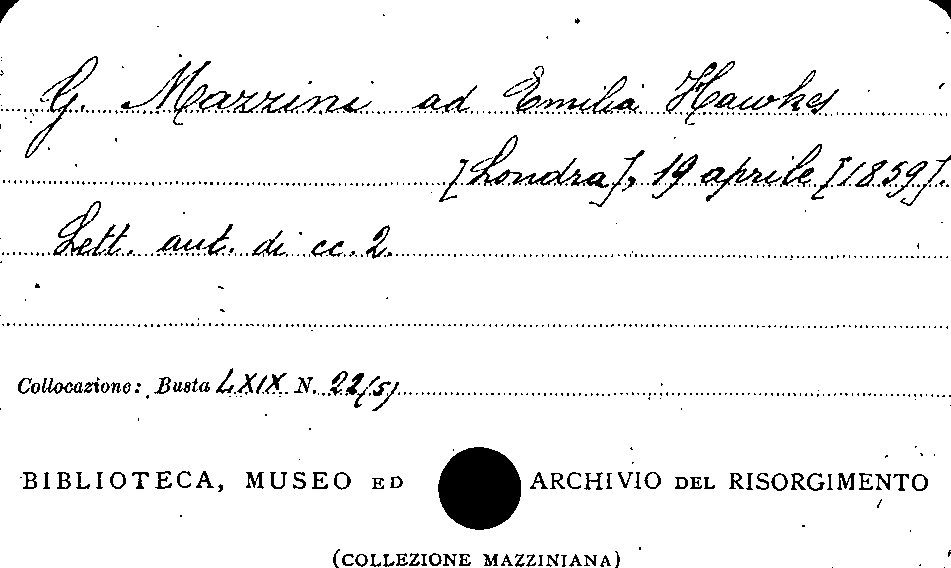 G. Mazzini ad Emilia Hawkes
[Londra], 19 aprile [1859].
Lett. aut. di cc. 2.
Collocazione: Busta LXIX N. 22(5)
BIBLIOTECA, MUSEO ED ARCHIVIO DEL RISORGIMENTO
(COLLEZIONE MAZZINIANA)